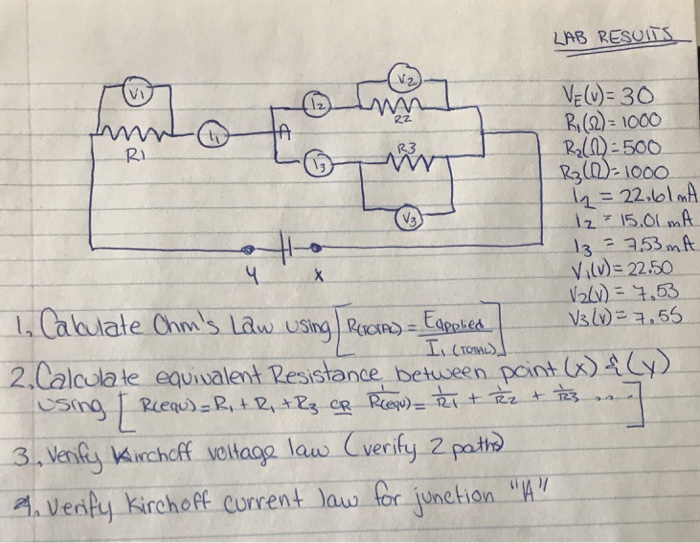 LAB RESULTS
V1
I1
A
I2
V2
R2
R1
R3
I3
V3
y
x
VE(V) = 30
R1(Ω) = 1000
R2(Ω) = 500
R3(Ω) = 1000
I1 = 22.61 mA
I2 = 15.01 mA
I3 = 7.53 mA
V1(V) = 22.50
V2(V) = 7.53
V3(V) = 7.55
1. Calculate Ohm's Law using [R(TOTAL) = Eapplied / I1 (TOTAL)]
2. Calculate equivalent Resistance between point (x) & (y)
using [R(equ) = R1 + R1 + R3 OR 1/R(equ) = 1/R1 + 1/R2 + 1/R3 ....]
3. Verify Kirchoff voltage law (verify 2 paths)
4. Verify Kirchoff current law for junction "A"